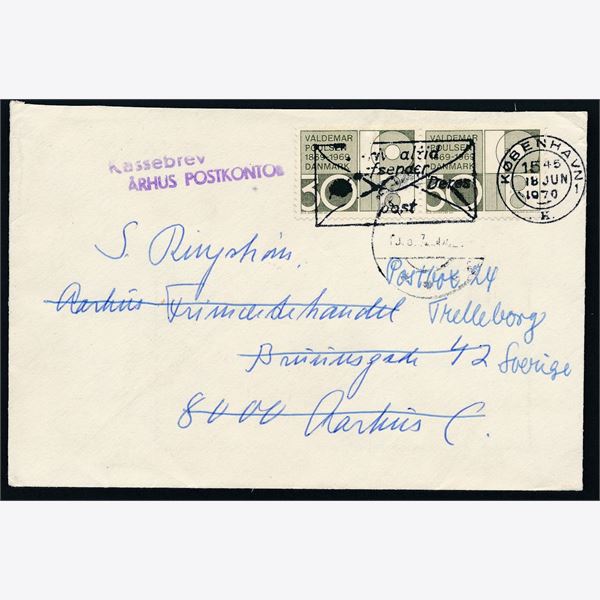 Kassebrev
ÅRHUS POSTKONTOR
VALDEMAR POULSEN 1869-1969 DANMARK
30
VALDEMAR POULSEN 1869-1969 DANMARK
30
altid
afsender
Deres
post
KØBENHAVN
15 45
18 JUN
1970
K. 1
S. Ringström
Aarhus Frimærkehandel
Bruunsgade 42
8000 Aarhus C.
Postbox 24
Trelleborg
Sverige